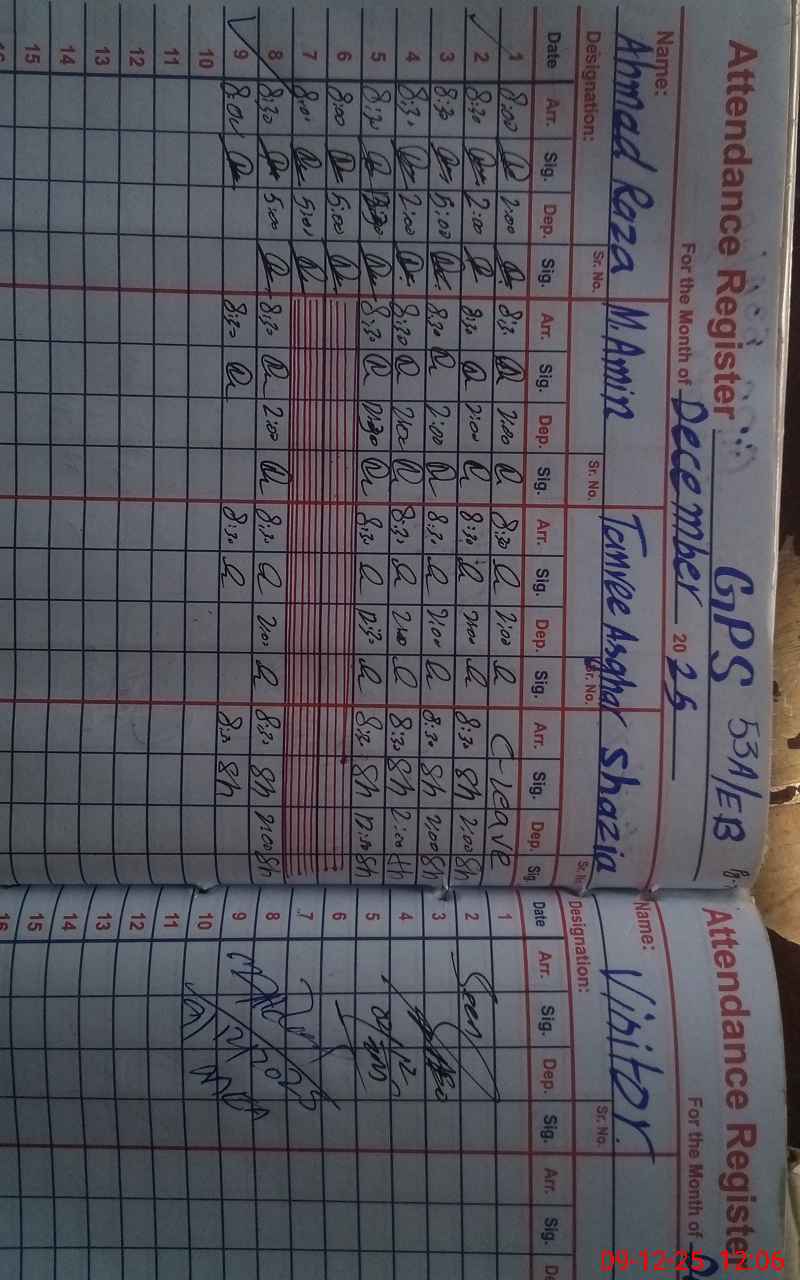 Attendance Register GPS 53A/EB
For the Month of December 2025
Name: Ahmad Raza M. Amin Asghar Shazia
Designation: Sr. No. Sr. No. Sr. No. Sr. No.
Date Arr. Sig. Dep. Sig. Arr. Sig. Dep. Sig. Arr. Sig. Dep. Sig. Arr. Sig. Dep. Sig.
1 8:00 2:00 8:30 2:00 8:30 2:00 C-leave
2 8:30 2:00 8:30 2:00 8:30 2:00 8:30 Sh 2:00 Sh
3 8:30 5:00 8:30 2:00 8:30 2:00 8:30 Sh 2:00 Sh
4 8:30 2:00 8:30 2:00 8:30 2:00 8:30 Sh 2:00 Sh
5 8:30 8:30 12:30 8:30 12:30 8:30 Sh 12:30 Sh
6 8:00 5:00
7 8:01 5:01
8 8:30 5:00 8:30 2:00 8:30 2:00 8:30 Sh 2:00 Sh
9 8:00 8:30 8:30 8:30 Sh
10
11
12
13
14
15
16
Attendance Register
For the Month of
Name: Visitor
Designation: Sr. No.
Date Arr. Sig. Dep. Sig. Arr. Sig.
1
2 Seen
3
4
5
6
7
8
9
10
11
12
13
14
15
16
09-12-25 12:06